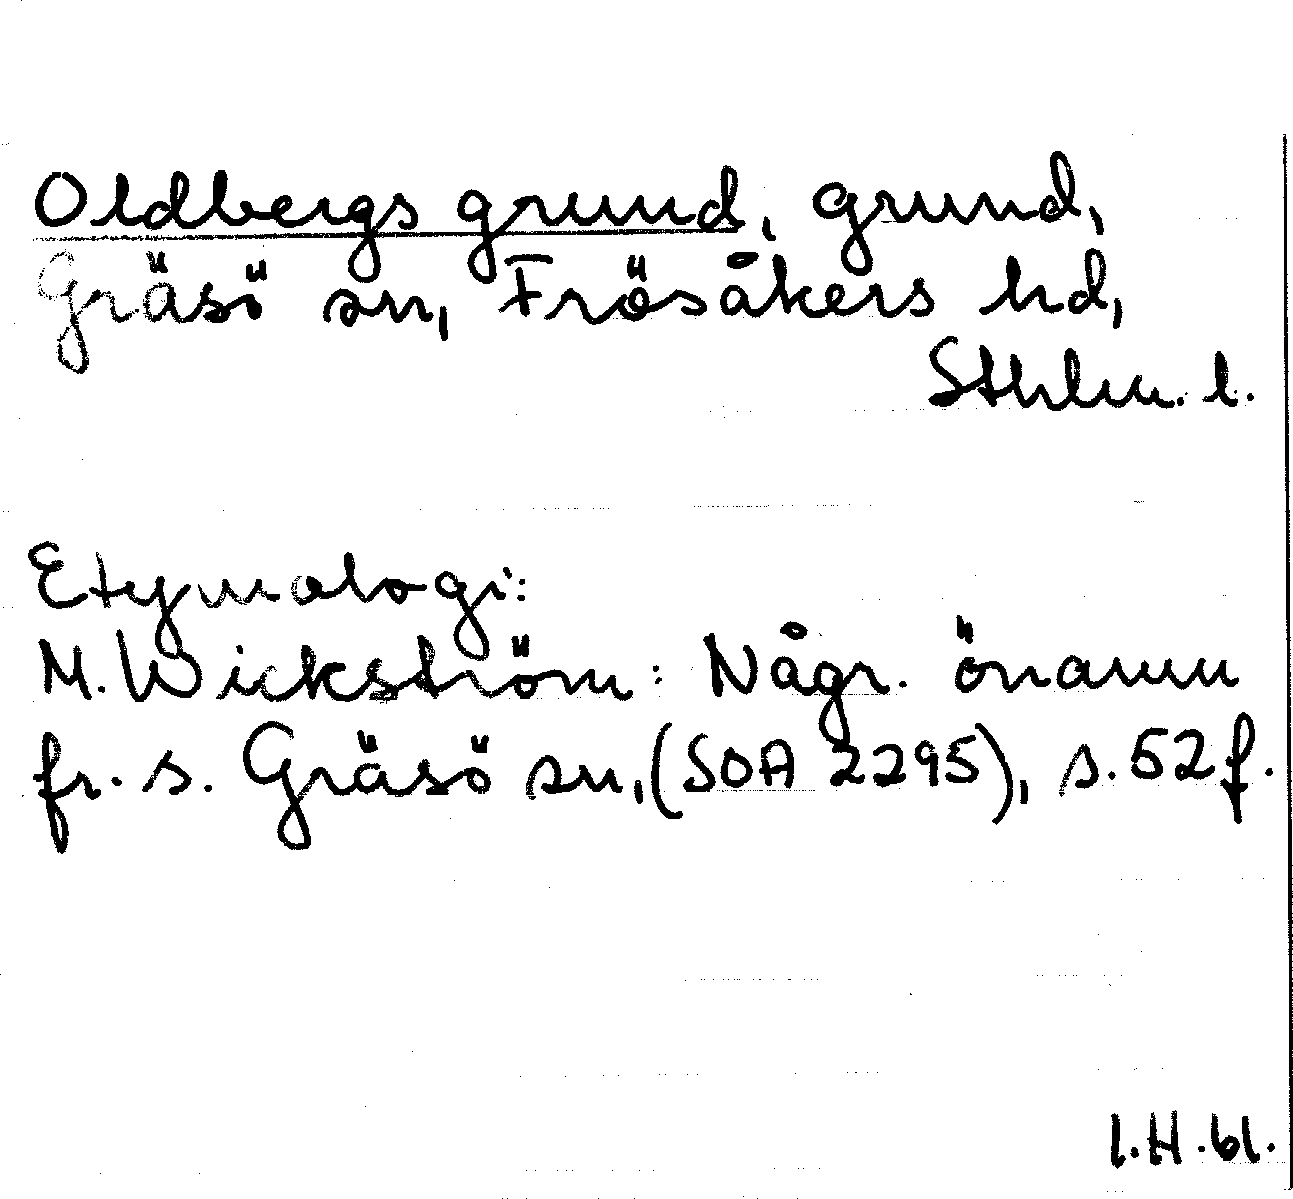 Oldbergs grund, grund,
Gräsö sn, Frösåkers hd,
Sthlm. l.
Etymologi:
M. Wickström: Någr. önamn
fr. s. Gräsö sn, (SOA 2295), s. 52 f.
I.H.61.